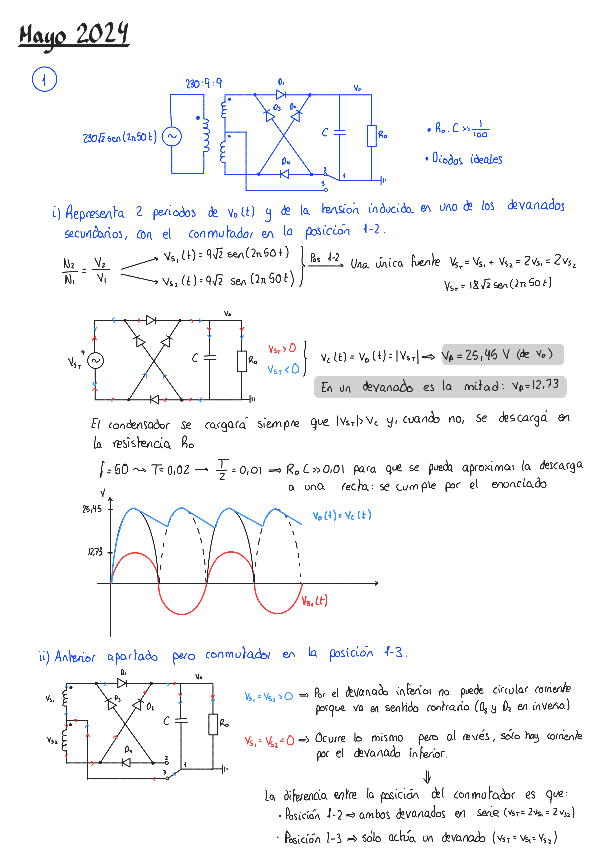 Mayo 2024
1
230:9:9
D₁
V₀
230√2 sen(2π50t)
D₃
D₂
C
R₀
• R₀·C >> 1/100
• Diodos ideales
D₄
2
1
3
i) Representa 2 periodos de v₀(t) y de la tensión inducida en uno de los devanados
secundarios, con el conmutador en la posición 1-2.
N₂/N₁ = V₂/V₁
Vs₁(t) = 9√2 sen(2π50t)
Vs₂(t) = 9√2 sen(2π50t)
Pos. 1-2
Una única fuente Vsₜ = Vs₁ + Vs₂ = 2Vs₁ = 2Vs₂
Vsₜ = 18√2 sen(2π50t)
V₀
Vsₜ
C
R₀
Vsₜ > 0
Vsₜ < 0
Vc(t) = V₀(t) = |Vsₜ| ⇒ Vp = 25,45 V (de v₀)
En un devanado es la mitad: Vp = 12,73
El condensador se cargará siempre que |Vsₜ| > Vc y, cuando no, se descargá en
la resistencia R₀
f = 50 → T = 0,02 → T/2 = 0,01 ⇒ R₀C >> 0,01 para que se pueda aproximar la descarga
a una recta: se cumple por el enunciado
V
25,45
V₀(t) = Vc(t)
12,73
Vs₁(t)
ii) Anterior apartado pero conmutador en la posición 1-3.
D₁
V₀
Vs₁
D₃
D₂
C
R₀
Vs₂
D₄
2
3
1
Vs₁ = Vs₂ > 0 ⇒ Por el devanado inferior no puede circular corriente
porque va en sentido contrario (D₃ y D₂ en inversa)
Vs₁ = Vs₂ < 0 ⇒ Ocurre lo mismo pero al revés, sólo hay corriente
por el devanado inferior.
⇓
La diferencia entre la posición del conmutador es que:
• Posición 1-2 ⇒ ambos devanados en serie (Vsₜ = 2Vs₁ = 2Vs₂)
• Posición 1-3 ⇒ sólo actúa un devanado (Vsₜ = Vs₁ = Vs₂)